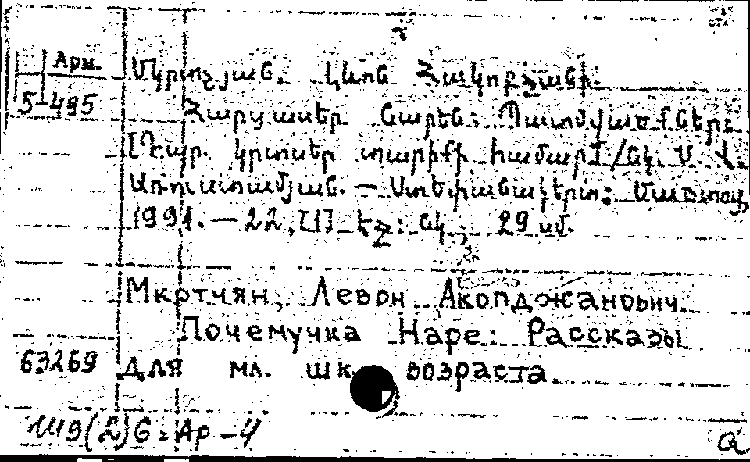 Арм.
5-495
Մկրտչյան. Լևոն Հակոբջանի.
Հարցասեր Նարեն: Պատմվածքներ:
[Դպր. կրտսեր տարիքի համար] /նկ. Ս. Վ.
1991. – 22, [1] էջ: նկ., 29 սմ.
Мкртчян, Левон Акопджанович.
Почемучка Наре: Рассказы
63269 для мл. шк. возраста.
(2)6=Ар-4
а